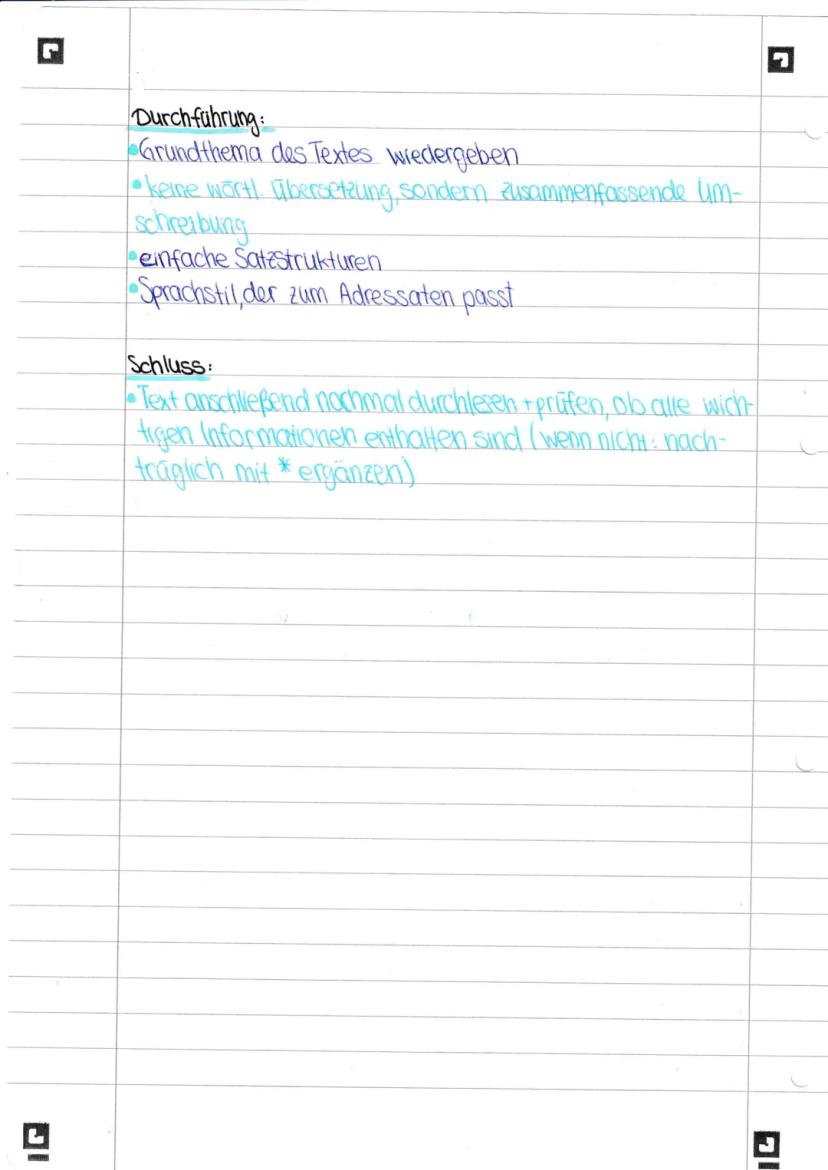 Durchführung:
• Grundthema des Textes wiedergeben
• keine wörtl. Übersetzung, sondern zusammenfassende Um-
schreibung
• einfache Satzstrukturen
• Sprachstil, der zum Adressaten passt
Schluss:
• Text anschließend nochmal durchlesen + prüfen, ob alle wich-
tigen Informationen enthalten sind (wenn nicht: nach-
träglich mit * ergänzen)